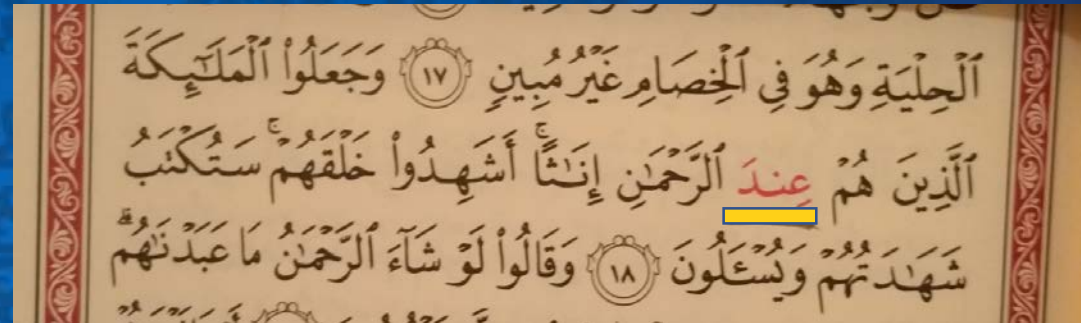 ٱلْحِلْيَةِ وَهُوَ فِي ٱلْخِصَامِ غَيْرُ مُبِينٍ ١٧ وَجَعَلُوا۟ ٱلْمَلَٰٓئِكَةَ
ٱلَّذِينَ هُمْ عِندَ ٱلرَّحْمَٰنِ إِنَٰثًا ۚ أَشَهِدُوا۟ خَلْقَهُمْ ۚ سَتُكْتَبُ
شَهَٰدَتُهُمْ وَيُسْـَٔلُونَ ١٨ وَقَالُوا۟ لَوْ شَآءَ ٱلرَّحْمَٰنُ مَا عَبَدْنَٰهُم ۗ